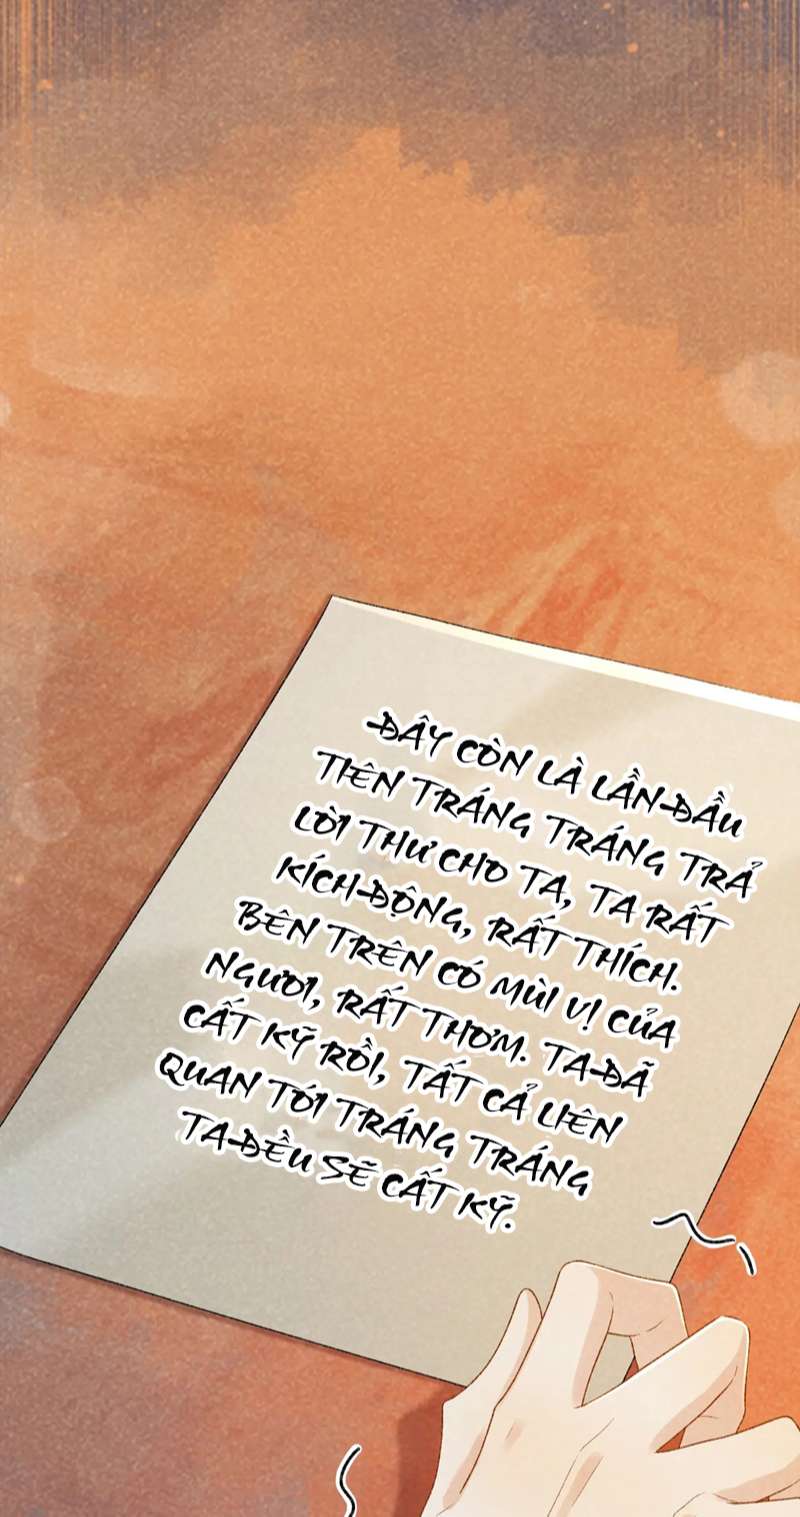 ĐÂY CÒN LÀ LẦN ĐẦU
TIÊN TRÁNG TRÁNG TRẢ
LỜI THƯ CHO TA, TA RẤT
KÍCH ĐỘNG, RẤT THÍCH.
BÊN TRÊN CÓ MÙI VỊ CỦA
NGƯƠI, RẤT THƠM. TA ĐÃ
CẤT KỸ RỒI, TẤT CẢ LIÊN
QUAN TỚI TRÁNG TRÁNG
TA ĐỀU SẼ CẤT KỸ.